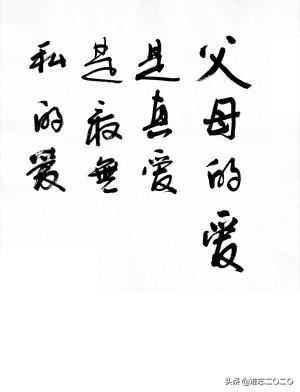 父母的爱
是真爱
是最無
私的爱
头条@难忘二〇二〇